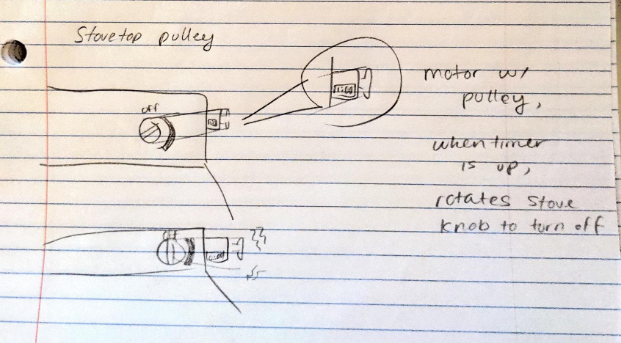 Stovetop pulley
off
motor w/
pulley,
when timer
is up,
rotates stove
knob to turn off
off